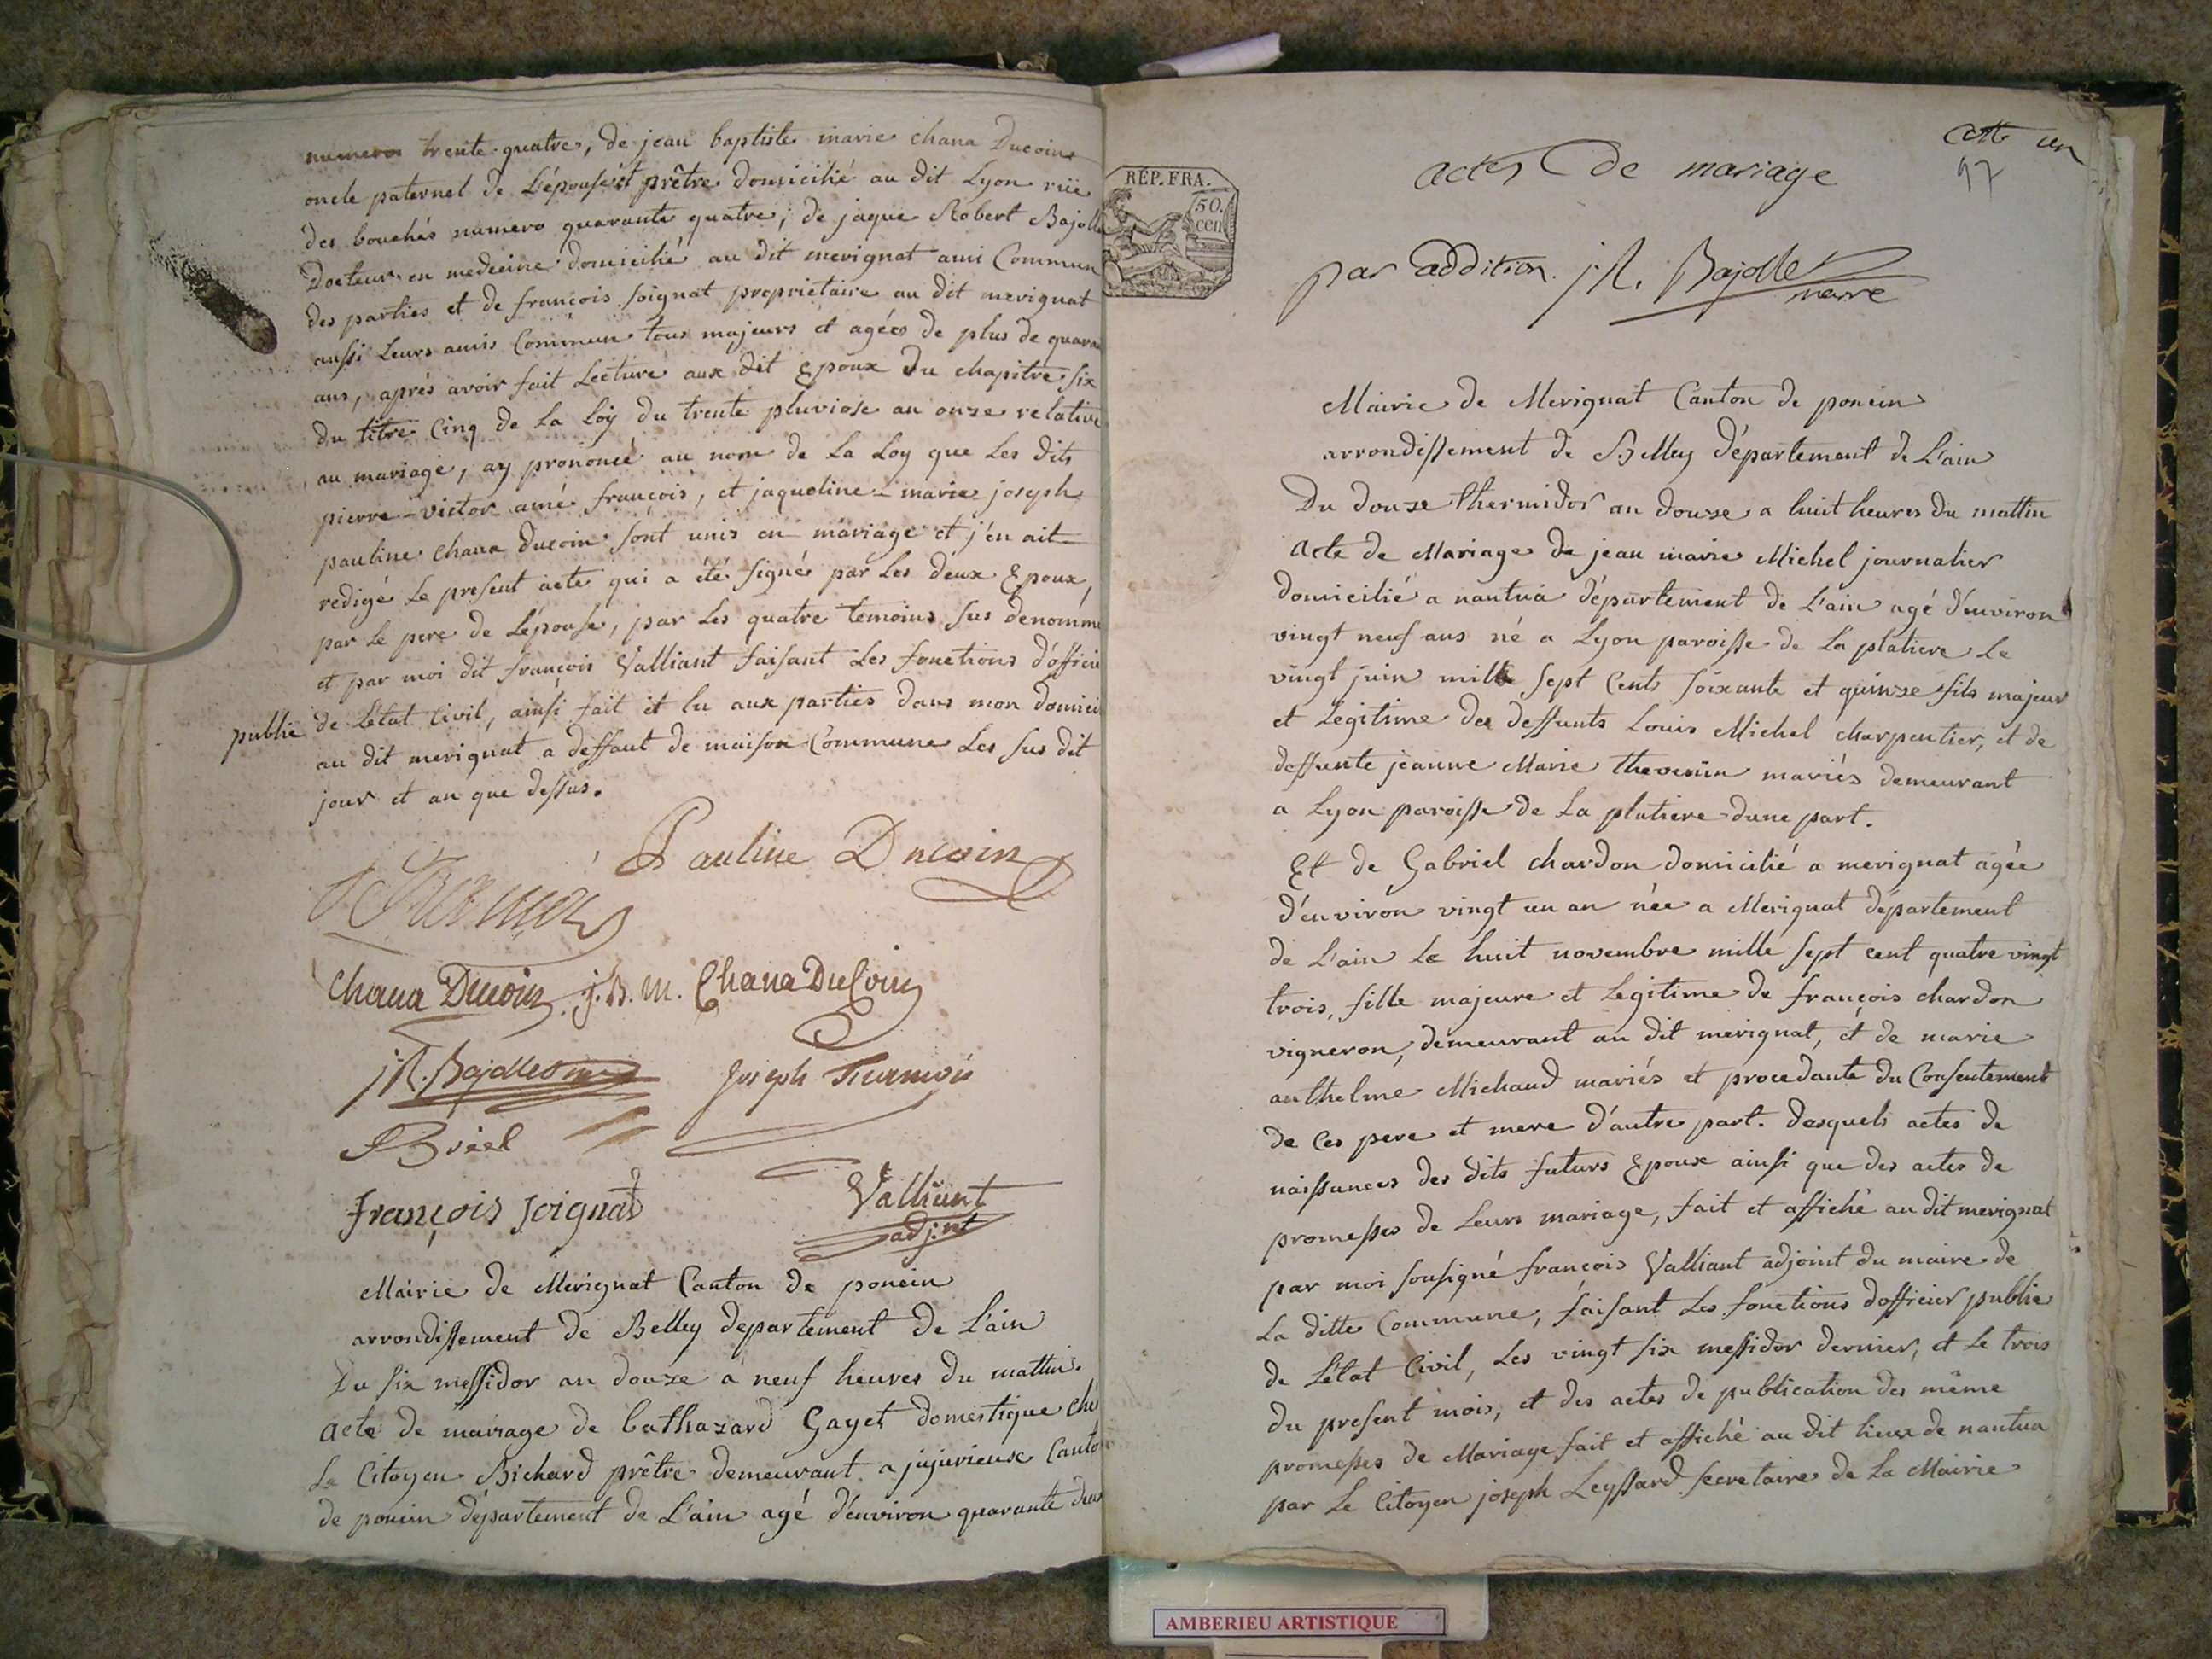 numero trente quatre, de jean baptiste marie chana Ducoin
oncle paternel de L'épouse et prêtre domicilié au dit Lyon rüe
des bouchés numero quarante quatre; de jaque Robert Bajolle
Docteur en medecine domicilié au dit merignat ami Commun
des parties et de françois soignat proprietaire au dit merignat
aussi Leurs amis Commun tous majeurs et agées de plus de quara
ans, aprés avoir fait Lecture aux dit Epoux du chapitre six
du titre Cinq de La Loÿ du trente pluviose an onze relative
au mariage, aÿ prononcé au nom de La Loy que Les dits
pierre-victor amé françois, et jaqueline-marie joseph
pauline chana ducoin sont unis en mariage et j'en ait
redigé Le present acte qui a été signé par Les deux Epoux,
par Le pere de L'épouse, par Les quatre temoins sus denommé
et par moi dit françois Valliant faisant Les fonctions d'officie
public de L'état Civil, ainsi fait et lu aux parties dans mon domici
au dit merignat a deffaut de maison Commune Les sus dit
jour et an que dessus.
Pauline Ducoin
Chana Ducoin j. B. M. Chana DuCoin
j R. Bajolle
Joseph
Briel
françois soignat
Valliant
adj.nt
Mairie de Merignat Canton de poncin
arrondissement de Belley departement de L'ain
Du six messidor an douze a neuf heures du mattin.
acte de mariage de bathazard Gayet domestique ché
Le Citoyen Bichard prêtre demeurant a jujurieuse Canto
de poncin département de L'ain agé d'environ quarante deux
cotte un
97
actes de mariage
RÉP. FRA.
50.
cen
par addition. j R. Bajolle
maire
Mairie de Merignat Canton de poncin
arrondissement de Belley département de L'ain
Du douze thermidor an douze a huit heures du mattin
acte de Mariage de jean marie Michel journalier
domicilié a nantua département de L'ain agé d'environ
vingt neuf ans né a Lyon paroisse de La platiere Le
vingt juin mille sept Cents soixante et quinze fils majeur
et Legitime des deffunts Louis Michel charpentier, et de
deffunte jeanne Marie thevenin mariés demeurant
a Lyon paroisse de La platiere dune part.
Et de Gabriel chardon domicilié a merignat agée
d'environ vingt un an née a Merignat département
de L'ain Le huit novembre mille sept cent quatre vingt
trois, fille majeure et Legitime de françois chardon
vigneron, demeurant au dit merignat, et de marie
anthelme Michaud mariés et procedante du Consentement
de Ces pere et mere d'autre part. desquels actes de
naissances des dits futurs Epoux ainsi que des actes de
promesses de Leurs mariage, fait et affiché au dit merignat
par moi sousigné françois Valliant adjoint du maire de
La ditte Commune, faisant Les fonctions d'officier public
de L'état Civil, Les vingt six messidor dernier, et Le trois
du present mois, et des actes de publication des même
promesses de Mariage fait et affiché au dit lieux de nantua
par Le Citoyen joseph Leyssard secretaire de La Mairie
AMBERIEU ARTISTIQUE